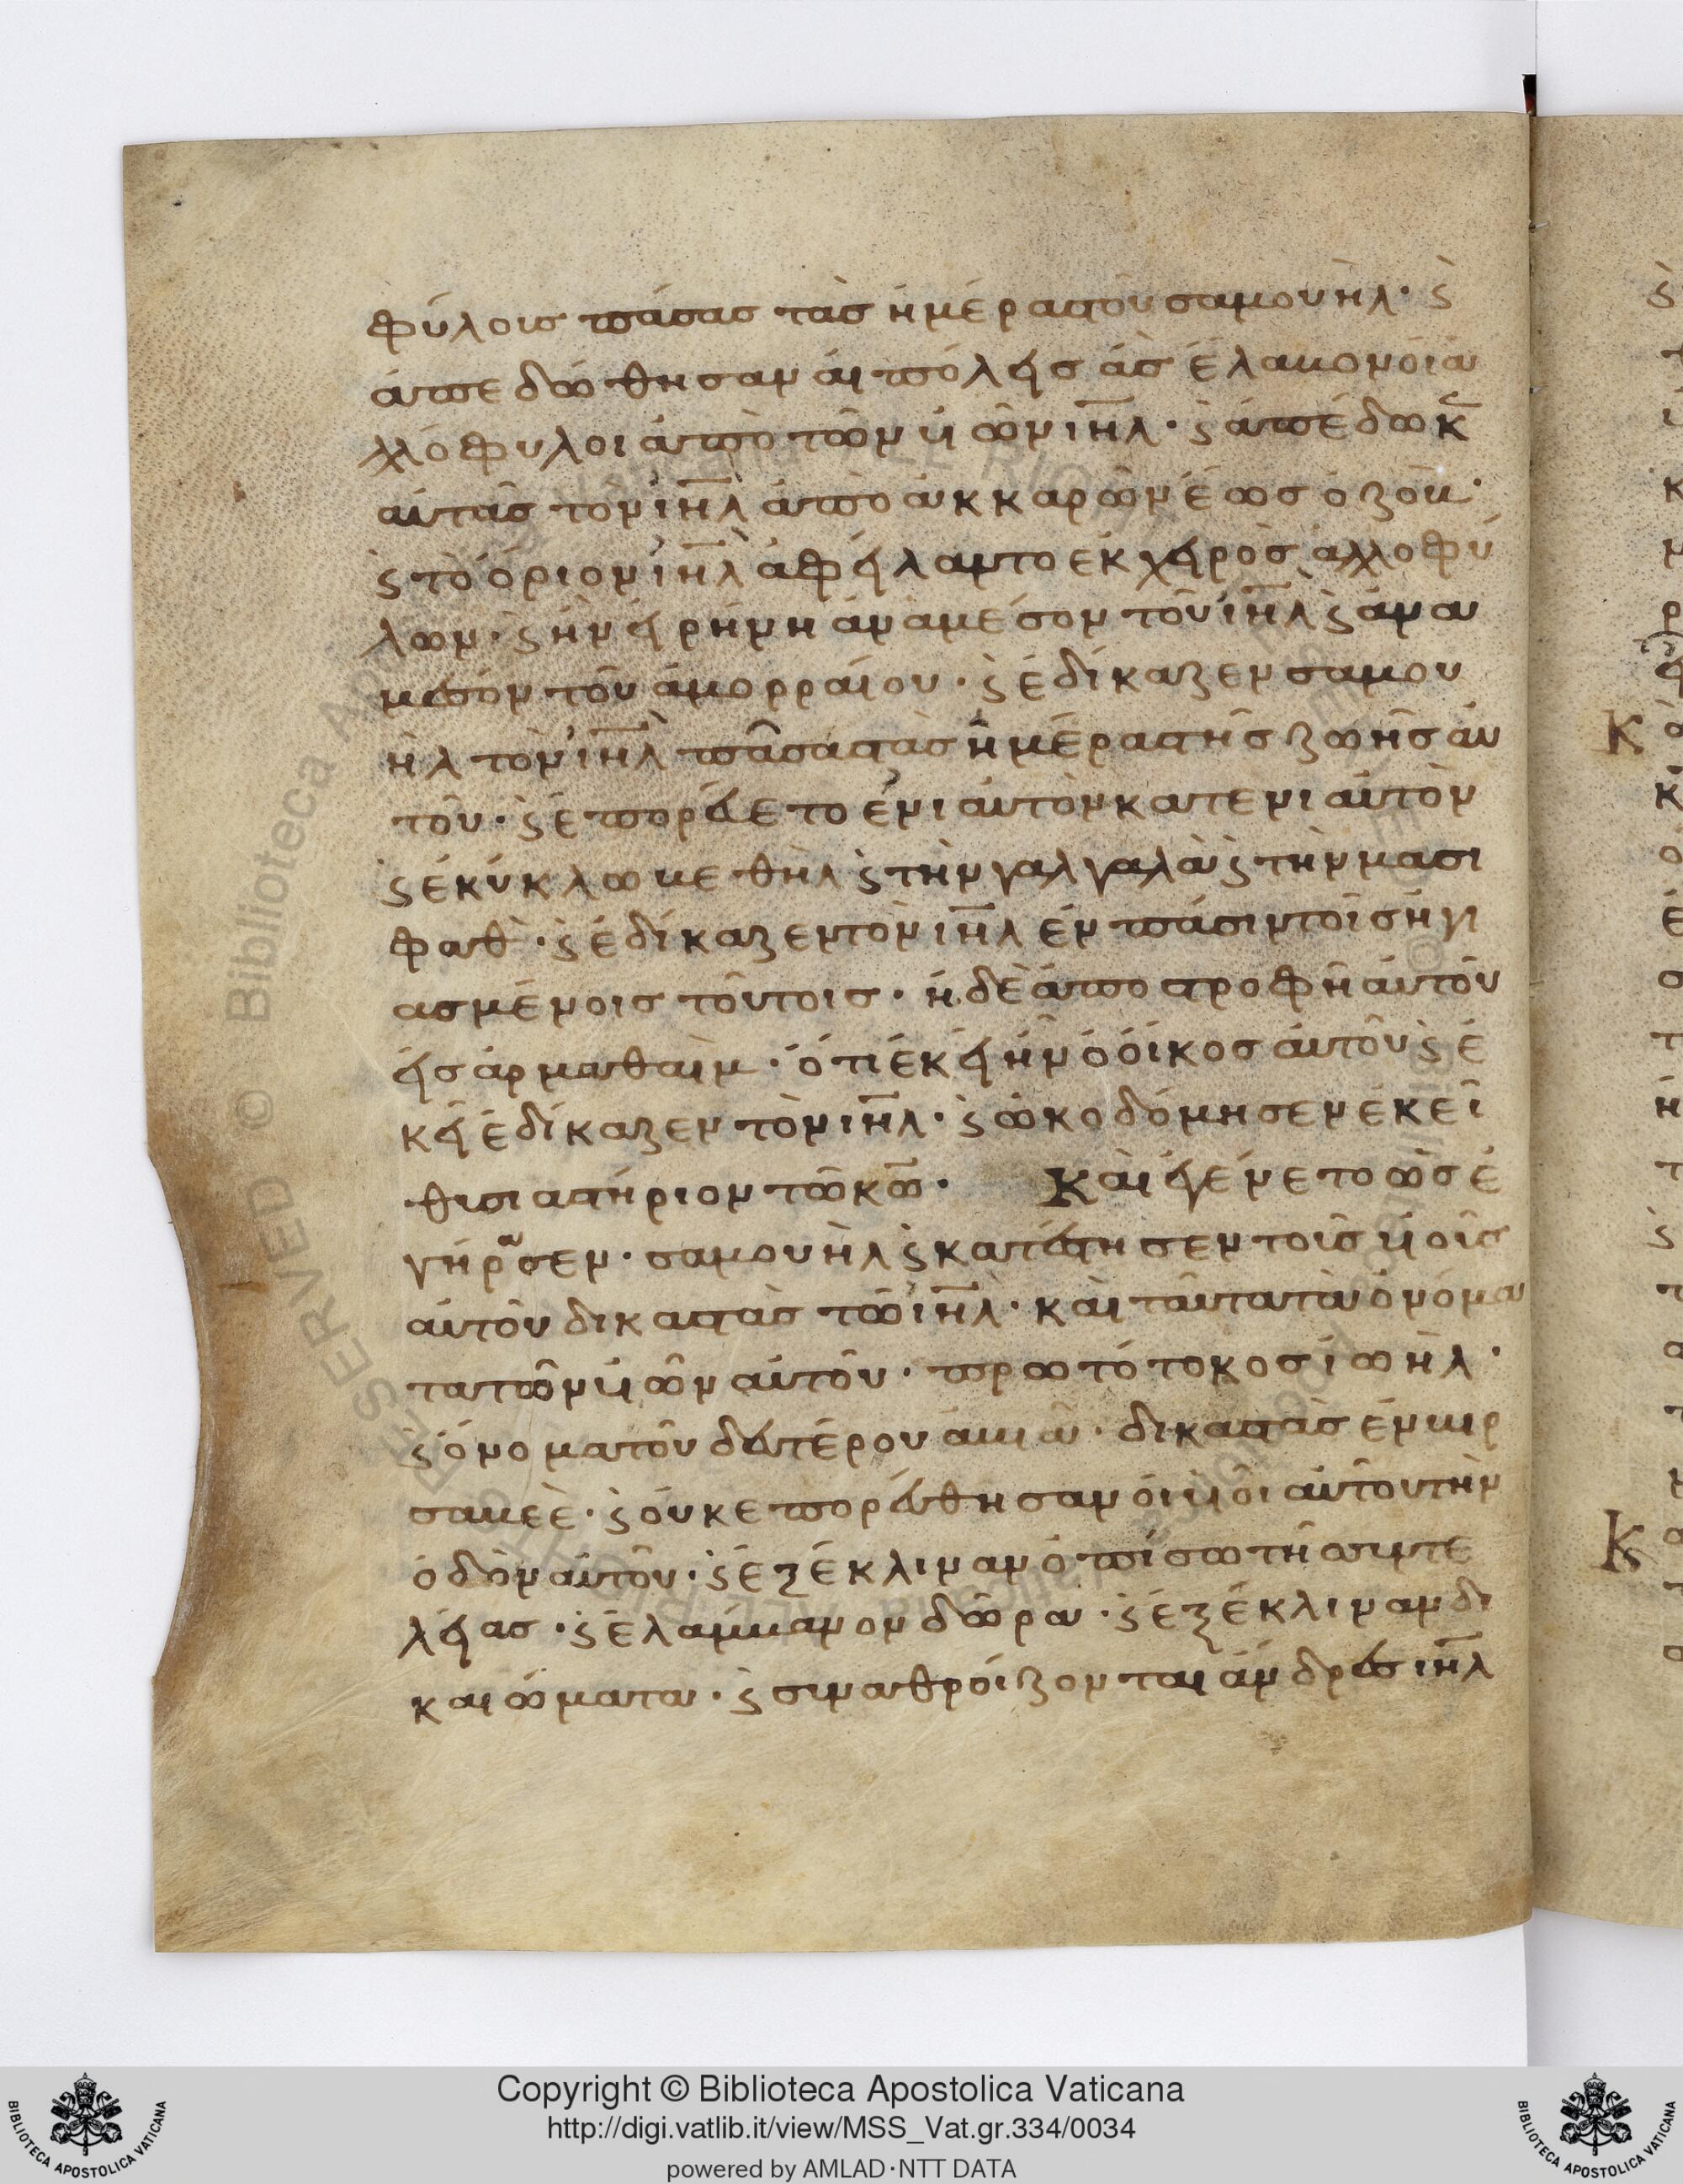 φύλοις πάσας τὰς ἡμέρας τοῦ σαμουὴλ· ϛ̀
ἀπεδόθησαν αἱ πόλεις ἁς ἔλαβον ὁι ἀ
λλόφυλοι ἀπὸ τῶν ϋἱῶν ιη̅λ· ϛ̀ ἀπέδωκ̅
αὐτὰς τὸν ιη̅λ ἀπὸ ἀκκαρῶν ἕως ὀζοβ·
ϛ̀ τὸ ὅριον ιη̅λ ἀφείλαντο ἐκ χειρὸς ἀλλοφύ
λων· ϛ̀ ἦν εἰρήνη ἀνὰ μέσον τοῦ ιη̅λ ϛ̀ ἀνα
μεσόν τοῦ ἀμορραίου· ϛ̀ ἐδίκαζεν σαμου
ὴλ τὸν ιη̅λ πᾶσας τὰς ἡμέρας τῆς ζωῆς αὐ
τοῦ· ϛ̀ ἐπορεύετο ἐνιαυτὸν κατ ενιαυτὸν
ϛ̀ ἐκύκλου βεθὴλ ϛ̀ τὴν γαλγαλὰ ϛ̀ τὴν μασι
φαθ· ϛ̀ ἐδίκαζεν τὸν ιη̅λ ἐν πάσιν τοῖς ἡγι
ασμένοις τοῦτοις· ἡ δὲ ἀποστροφῆ αὐτοῦ
εἰς ἀρμαθαὶμ· ὅτι ἐκεῖ ἦν ὁ ὀίκος αὐτοῦ ϛ̀ ἐ
κεῖ ἐδίκαζεν τὸν ιη̅λ· ϛ̀ ὠκοδόμησεν ἐκεῖ
θισιαστήριον τῶ κω̅· Καὶ ἐγένετο ὡς ἐ
γήρασεν· σαμουὴλ ϛ̀ κατέστησεν τοῖς ϋἱοῖς
αὐτοῦ δικαστὰς τῶ ιη̅λ· καὶ ταῦτα τὰ ὀνόμα
τα τῶν ϋἱῶν αὐτοῦ· πρωτότοκος ἰωὴλ·
ϛ̀ ὄνομα τοῦ δευτέρου ἀβιὰ· δικαστὰς ἐν βιρ
σαβεὲ· ϛ̀ οὐκ επορεύθησαν ὁι ϋἱοὶ αὐτοῦ τὴν
ὁδὸν αὐτοῦ· ϛ̀ ἐξέκλιναν ὀπίσω τῆς συντε
λείας· ϛ̀ ἐλάμβανον δῶρα· ϛ̀ ἐξέκλιναν δι
καιώματα· ϛ̀ συναθροίζονται ἄνδρες ιη̅λ
Copyright © Biblioteca Apostolica Vaticana
http://digi.vatlib.it/view/MSS_Vat.gr.334/0034
powered by AMLAD·NTT DATA
BIBLIOTECA APOSTOLICA VATICANA
BIBLIOTECA APOSTOLICA VATICANA